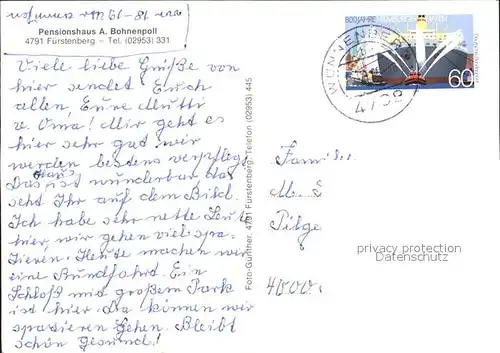 von 18-19 Uhr
Pensionshaus A. Bohnenpoll
4791 Fürstenberg – Tel. (02953) 331
Viele liebe Grüße von
hier sendet Euch
allen, Eure Mutti
u. Oma! Mir geht es
hier sehr gut wir
werden bestens verpflegt
Haus
Das ist wunderbar das
seht Ihr auf dem Bild.
Ich habe sehr nette Leute
hier, wir gehen viel spa-
zieren. Heute machen wir
eine Rundfahrt. Ein
Schloß mit großem Park
ist hier. Da können wir
spazieren gehen. Bleibt
schön gesund!
Foto-Günther, 4791 Fürstenberg Telefon (02953) 445
800 JAHRE HAMBURGER HAFEN
Deutsche Bundespost
60
WÜNNENBERG
4798
Familie
M. S
Pilge
privacy protection
Datenschutz
4000